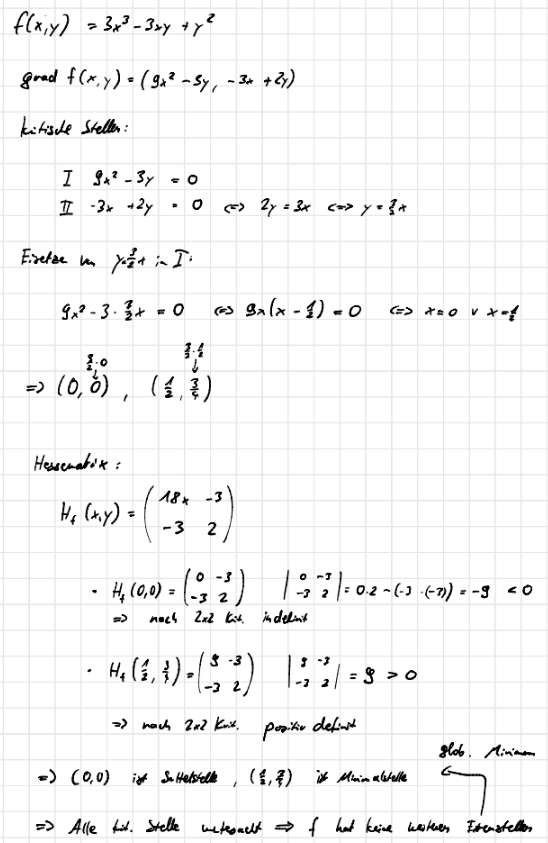 f(x,y) = 3x³ - 3xy + y²
grad f(x,y) = (9x² - 3y, -3x + 2y)
kritische Stellen:
I 9x² - 3y = 0
II -3x + 2y = 0 <=> 2y = 3x <=> y = 3/2 x
Einsetzen von y = 3/2 x in I:
9x² - 3 · 3/2 x = 0 <=> 9x(x - 1/2) = 0 <=> x = 0 ∨ x = 1/2
3/2 · 0 3/2 · 1/2
↓ ↓
=> (0, 0) , (1/2, 3/4)
Hessematrix:
H_f (x,y) = ( 18x -3
-3 2 )
· H_f (0,0) = ( 0 -3 | 0 -3
-3 2 ) -3 2 | = 0·2 - (-3 · (-3)) = -9 < 0
=> nach 2x2 Krit. indefinit
· H_f (1/2, 3/4) = ( 9 -3 | 9 -3
-3 2 ) -3 2 | = 9 > 0
=> nach 2x2 Krit. positiv definit
glob. Minimum
=> (0,0) ist Sattelstelle , (1/2, 3/4) ist Minimalstelle
=> Alle krit. Stelle untersucht => f hat keine weiteren Extremstellen